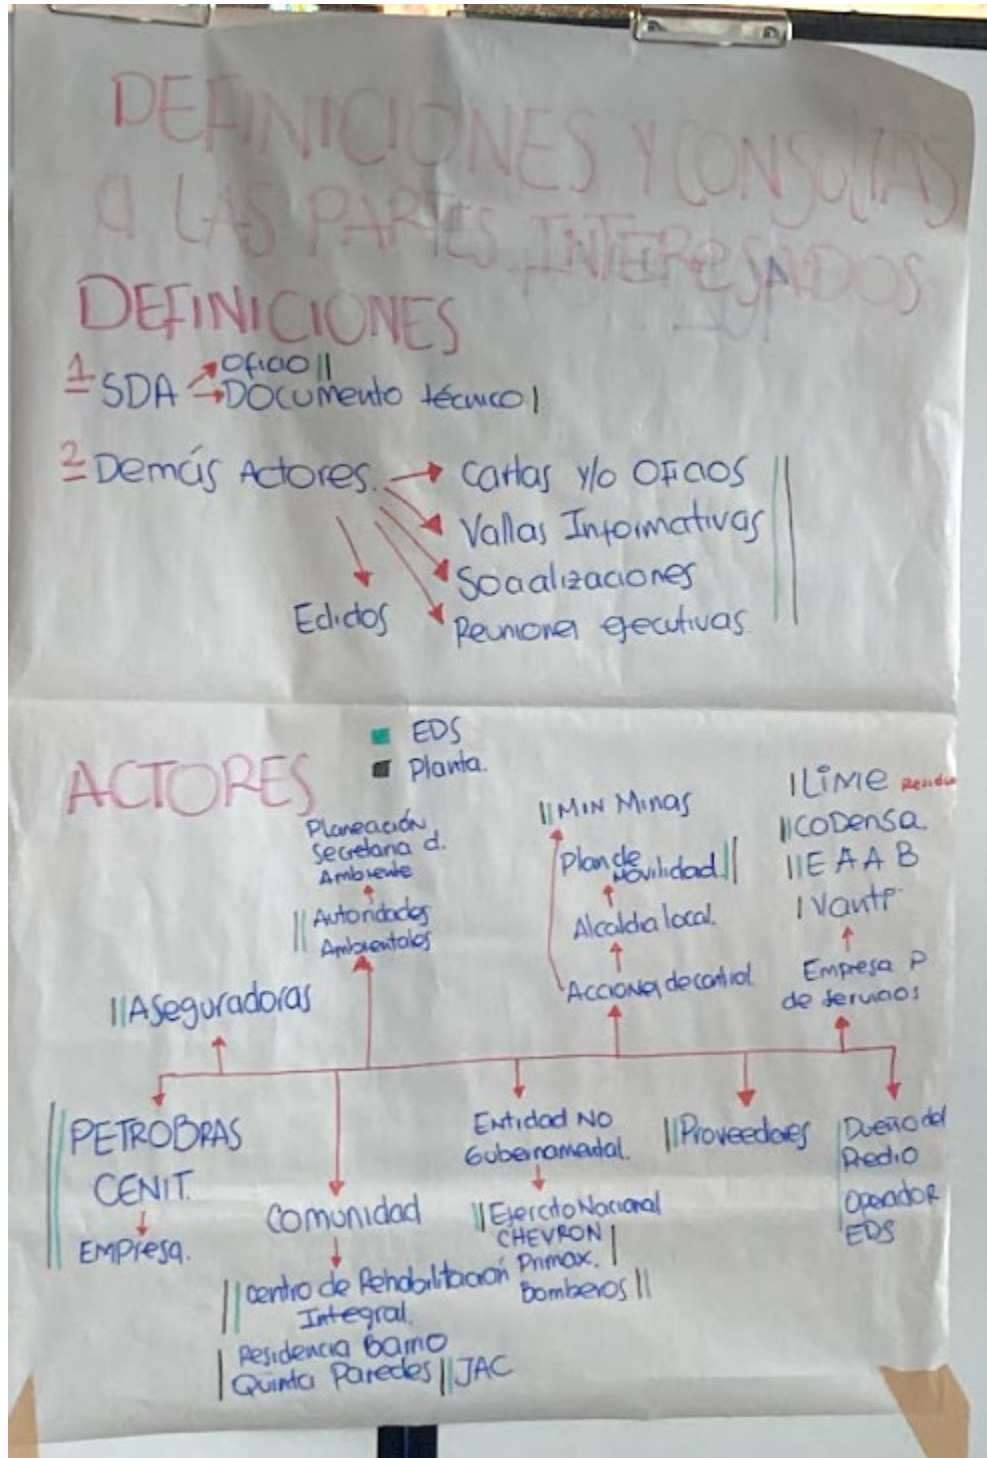 DEFINICIONES Y CONSULTAS
A LAS PARTES INTERESADOS
DEFINICIONES
1 SDA → Oficio
→ Documento técnico
2 Demás Actores → Cartas y/o Oficios
Vallas Informativas
Socializaciones
Edictos
Reuniones ejecutivas
EDS
Planta.
ACTORES
Planeación
Secretaria d.
Ambiente
Autoridades
Ambientales
Aseguradoras
MIN Minas
Plan de
Movilidad
Alcaldia local.
Acciones de control.
LIME
CODENSA.
EAAB
Empresa P
de servicios
PETROBRAS
CENIT.
EMPresa.
Comunidad
Centro de Rehabilitación
Integral.
Residencia Barrio
Quinta Paredes JAC
Entidad NO
Gubernamental.
Ejercito Nacional
CHEVRON
Primax.
Bomberos
Proveedores
Dueño del
Predio
Operador
EDS